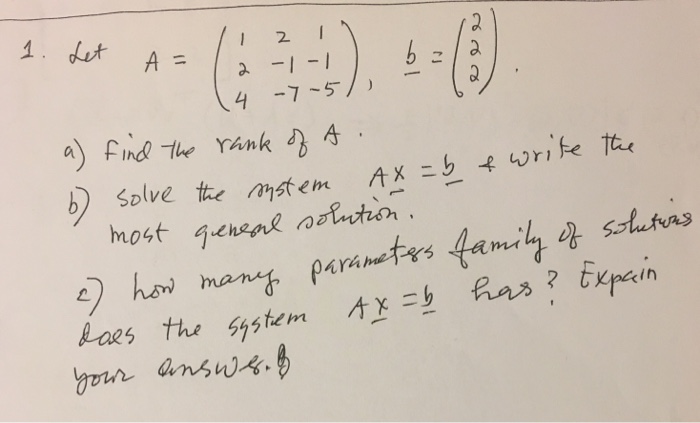 1. Let A = ( 1 2 1 ), b = ( 2 ).
2 -1 -1 2
4 -7 -5 2
a) find the rank of A.
b) solve the system Ax = b & write the
most general solution.
c) how many parameters family of solutions
does the system Ax = b has? Expain
your answer.